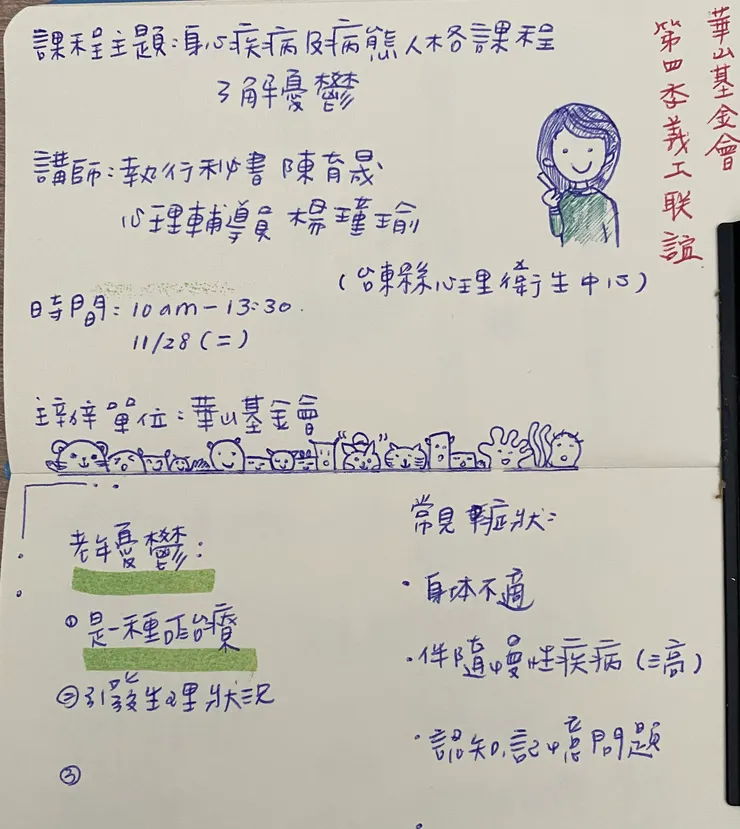 華山基金會
第四季義工联誼
課程主題:身心疾病及病態人格課程
了解憂鬱
講師:執行秘書 陳育晟
心理輔導員 楊瑾瑜
(台東縣心理衛生中心)
時間:10am-13:30
11/28(二)
主辦單位:華山基金會
老年憂鬱:
①是一種可治療
②引發生理狀況
③
常見症狀:
·身体不適
·伴隨慢性疾病(三高)
·認知,記憶問題